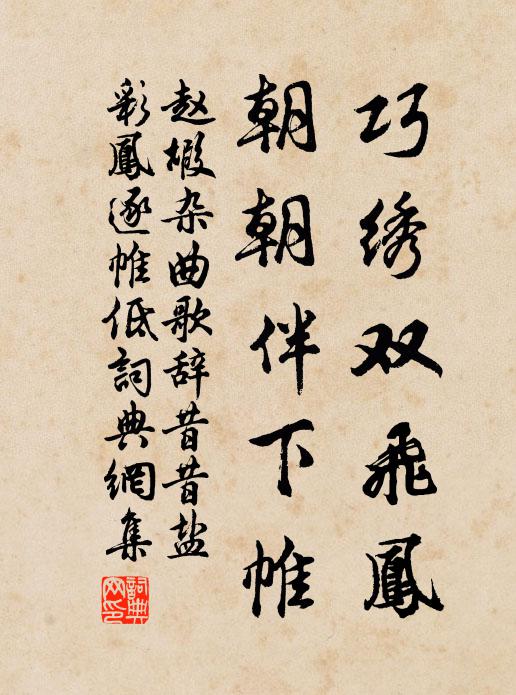 巧绣双飛鳳
朝朝伴下帷
赵嘏杂曲歌辞昔昔盐
彩鳳逐帷低詞典網集
詞典网印